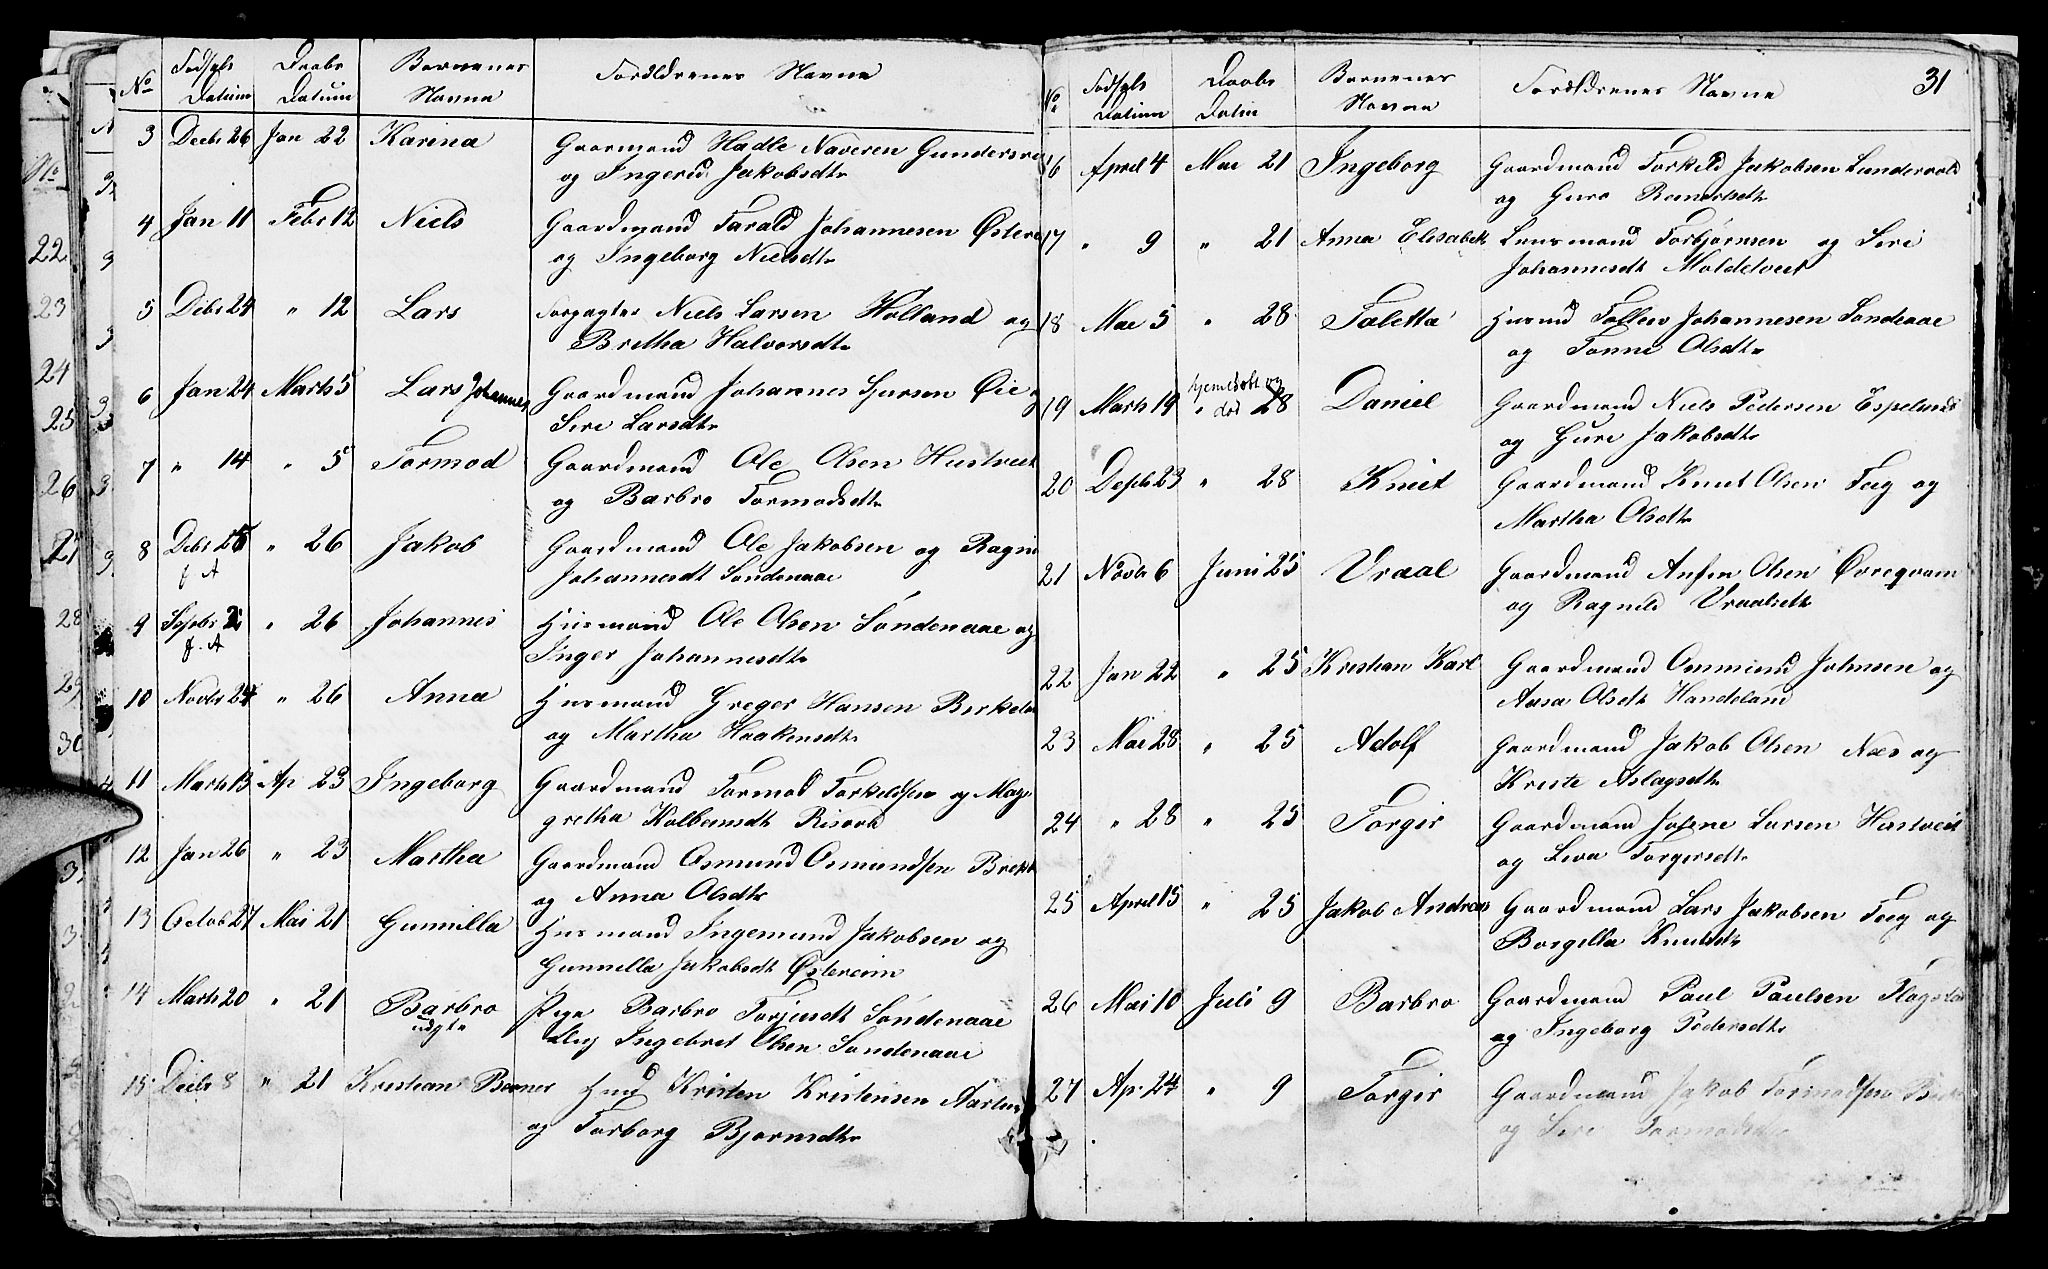 No Fødsels Datum Daabs Datum Børnenes Navne Forældrenes Navne
3 Decbr 26 Jan 22 Karina Gaarmand Hadle Naveren Gunderse
og Ingerid Jakobsdtr
4 Jan 11 Febr 12 Niels Gaardmand Tarald Johannesen Østere
og Ingeborg Nielsdtr
5 Debr 24 " 12 Lars Forpagter Niels Larsen Holland og
Bretha Halvorsdtr
6 Jan 24 Marts 5 Lars Johannes Gaardmand Johannes Sjursen Øie og
Siri Larsdtr
7 " 14 " 5 Tormod Gaardmand Ole Olsen Hustveit
og Barbro Tormodsdtr
8 Debr 25 " 26 Jakob Gaardmand Ole Jakobsen og Ragni
f A Johannesdt Søndenaae
9 Sepbr " 26 Johannis Husmand Ole Olsen Søndenaae og
f. A Inger Johannesdtr
10 Novbr 24 " 26 Anna Husmand Greger Hansen Birkela
og Martha Haakensdtr
11 Marts 13 Ap 23 Ingeborg Gaardmand Tormod Torkildsen og Mag
gretha Kolbensdt Risvok
12 Jan 26 " 23 Martha Gaardmand Osmund Osmundsen Brekk
og Anna Olsdtr
13 Octob 27 Mai 21 Gunnilla Husmand Ingemund Jakobsen og
Gunnilla Jakobsdt Østereim
14 Marts 20 " 21 Barbro Pige Barbro Torjusdt Søndenaae
udgte Ung Ingebret Olsen Søndenaae
15 Decbr 8 " 21 Kristian Berner Hmd Kristen Kristensen Aartu
og Torborg Bjornsdtr
31
No Fødsels Datum Daabs Datum Børnenes Navne Forældrenes Navne
16 April 4 Mae 21 Ingeborg Gaardmand Torkild Jakobsen Sundervold
og Guro Reinertsdtr
17 " 9 " 21 Anna Elisabet Lansmand Torbjørnsen og Siri
Johannesdt Moldetveit
18 Mae 5 " 28 Taletta Husmd Tollew Johannesen Sondenaae
og Tonne Olsdtr
19 Marts 19 hjemedøbt og død " 28 Daniel Gaardmand Niels Pedersen Espeland
og Guri Jakobsdtr
20 Depbr 23 " 28 Knut Gaardmand Knut Olsen Feeg og
Martha Olsdtr
21 Novbr 6 Juni 25 Vraal Gaardmand Anfin Olsen Øvreqvam
og Ragnild Vraalsdtr
22 Jan 22 " 25 Kristian Karl Gaardmand Osmund Johnsen og
Aasa Olsdtr Handeland
23 Mai 28 " 25 Adolf Gaardmand Jakob Olsen Næs og
Kriste Aslagsdtr
24 " 28 " 25 Torgir Gaardmand Larsen Hustveit
og Siva Torgersdtr
25 April 15 " 25 Jakob Andreas Gaardmand Lars Jakobsen Feeg og
Borgilla Knutsdtr
26 Mai 10 Juli 9 Barbro Gaardmand Paul Paulsen Flogsta
og Ingeborg Pedersdtr
27 Ap 24 " 9 Torgir Gaardmand Jakob Tormodsen
og Siri Tormodsdtr